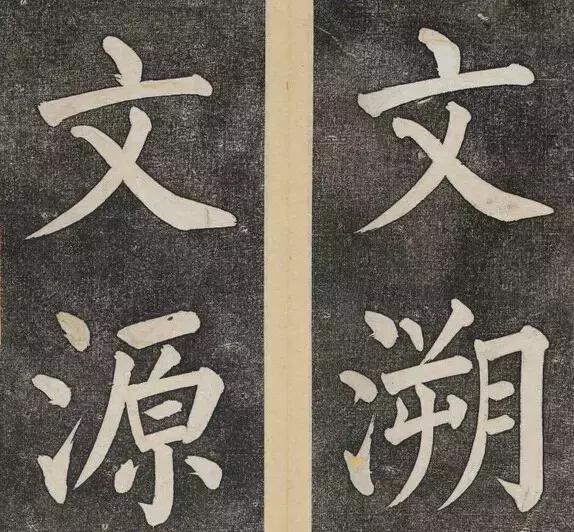 文溯
文源